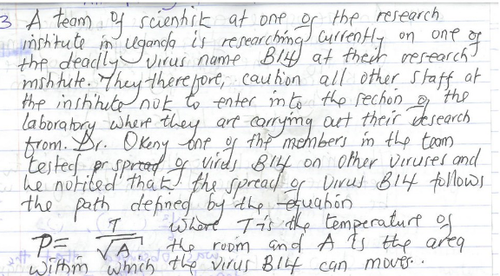 3 A team of scientist at one of the research
institute in Uganda is researching currently on one of
the deadly virus name B14 at their research
institute. They therefore, caution all other staff at
the institute not to enter into the section of the
laboratory where they are carrying out their research
from. Dr. Okeny one of the members in the team
tested spread of virus B14 on other viruses and
he noticed that the spread of virus B14 follows
the path defined by the equation
P = T/√A where T is the temperature of
the room and A is the area
within which the virus B14 can move.